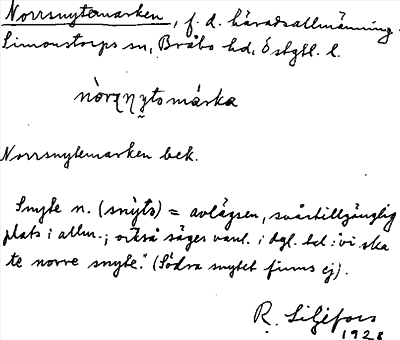 Norrsnytemarken, f. d. häradsallmänning.
Simonstorps sn, Bråbo hd, Östgtl. l.
Norrsnytemarken bek.
Snyte n. (snỳtə) = avlägsen, svårtillgänglig
plats i allm.; också säges vanl. i dgl. tal: "vi ska
te norre snyte." (Södra snytet finns ej).
R. Liljefors
1928